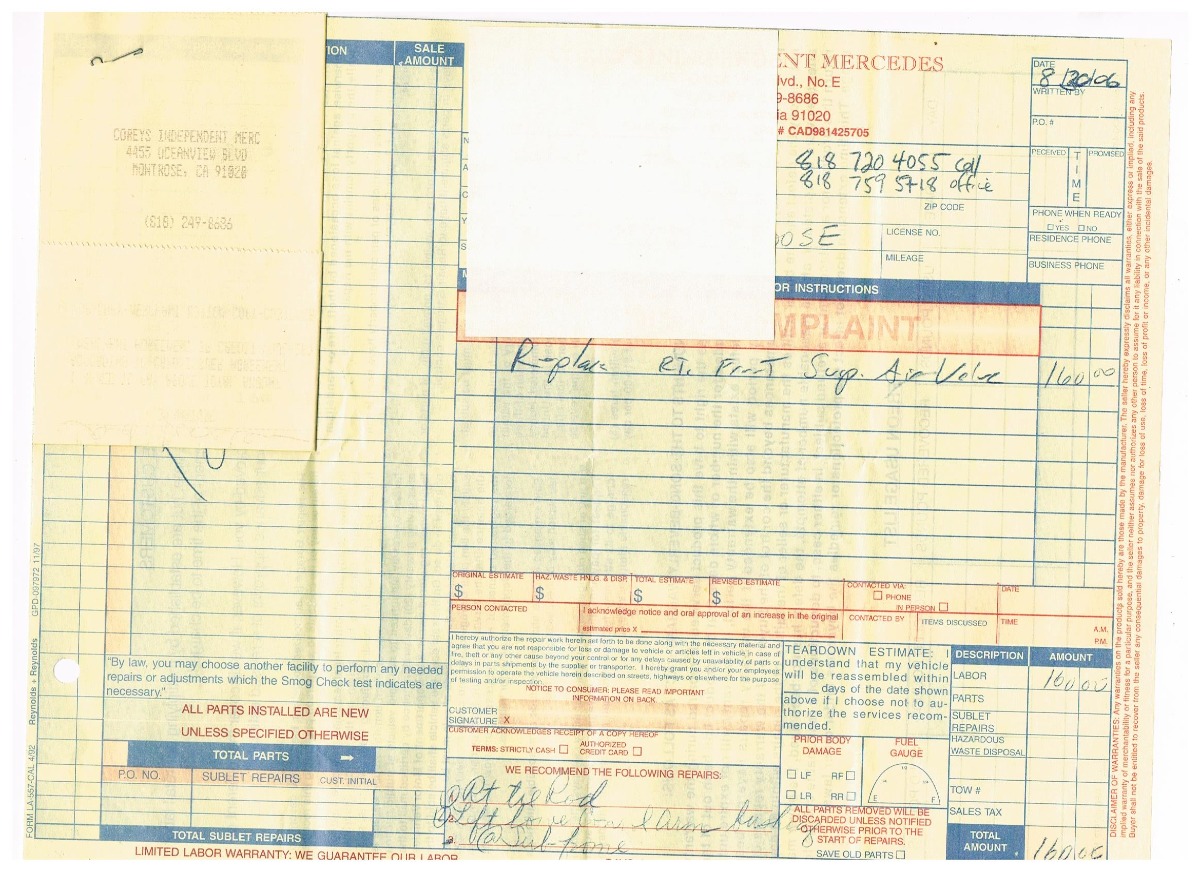 COREYS INDEPENDENT MERC
4455 OCEANVIEW BLVD
MONTROSE, CA 91020
(818) 249-8686
ION
SALE
AMOUNT
ENT MERCEDES
lvd., No. E
9-8686
ia 91020
# CAD981425705
818 720 4055 Cell
818 759 5718 office
ZIP CODE
OSE
LICENSE NO.
MILEAGE
DATE
8
WRITTEN BY
P.O. #
RECEIVED
TIME
PROMISED
PHONE WHEN READY
YES NO
RESIDENCE PHONE
BUSINESS PHONE
OR INSTRUCTIONS
MPLAINT
Replace RT. Front Susp. Air Valve 160 00
ORIGINAL ESTIMATE
$
HAZ. WASTE HNLG. & DISP.
$
TOTAL ESTIMATE
$
REVISED ESTIMATE
$
CONTACTED VIA:
PHONE
IN PERSON
DATE
PERSON CONTACTED
I acknowledge notice and oral approval of an increase in the original
estimated price X
CONTACTED BY
ITEMS DISCUSSED
TIME
A.M.
P.M.
I hereby authorize the repair work herein set forth to be done along with the necessary material and
agree that you are not responsible for loss or damage to vehicle or articles left in vehicle in case of
fire, theft or any other cause beyond your control or for any delays caused by unavailability of parts or
delays in parts shipments by the supplier or transporter. I hereby grant you and/or your employees
permission to operate the vehicle herein described on streets, highways or elsewhere for the purpose
of testing and/or inspection.
NOTICE TO CONSUMER: PLEASE READ IMPORTANT
INFORMATION ON BACK
CUSTOMER
SIGNATURE X
CUSTOMER ACKNOWLEDGES RECEIPT OF A COPY HEREOF
TERMS: STRICTLY CASH
AUTHORIZED
CREDIT CARD
TEARDOWN ESTIMATE: I
understand that my vehicle
will be reassembled within
____ days of the date shown
above if I choose not to au-
thorize the services recom-
mended.
DESCRIPTION AMOUNT
LABOR 160 00
PARTS
SUBLET
REPAIRS
HAZARDOUS
WASTE DISPOSAL
TOW #
SALES TAX
TOTAL
AMOUNT 160 00
PRIOR BODY
DAMAGE
LF RF
LR RR
FUEL
GAUGE
E 1/2 F
ALL PARTS REMOVED WILL BE
DISCARDED UNLESS NOTIFIED
OTHERWISE PRIOR TO THE
START OF REPAIRS.
SAVE OLD PARTS
WE RECOMMEND THE FOLLOWING REPAIRS:
Rt tie Rod
Left Lower
"By law, you may choose another facility to perform any needed
repairs or adjustments which the Smog Check test indicates are
necessary."
ALL PARTS INSTALLED ARE NEW
UNLESS SPECIFIED OTHERWISE
TOTAL PARTS
P.O. NO. SUBLET REPAIRS CUST. INITIAL
TOTAL SUBLET REPAIRS
LIMITED LABOR WARRANTY: WE GUARANTEE OUR LABOR
FORM LA-557-CAL 4/02 Reynolds + Reynolds GPD-097972 11/97
DISCLAIMER OF WARRANTIES: Any warranties on the products sold hereby are those made by the manufacturer. The seller hereby expressly disclaims all warranties, either express or implied, including any
implied warranty of merchantability or fitness for a particular purpose, and the seller neither assumes nor authorizes any other person to assume for it any liability in connection with the sale of the said products.
Buyer shall not be entitled to recover from the seller any consequential damages, damages to property, damage for loss of use, loss of time, loss of profit or income, or any other incidental damages.